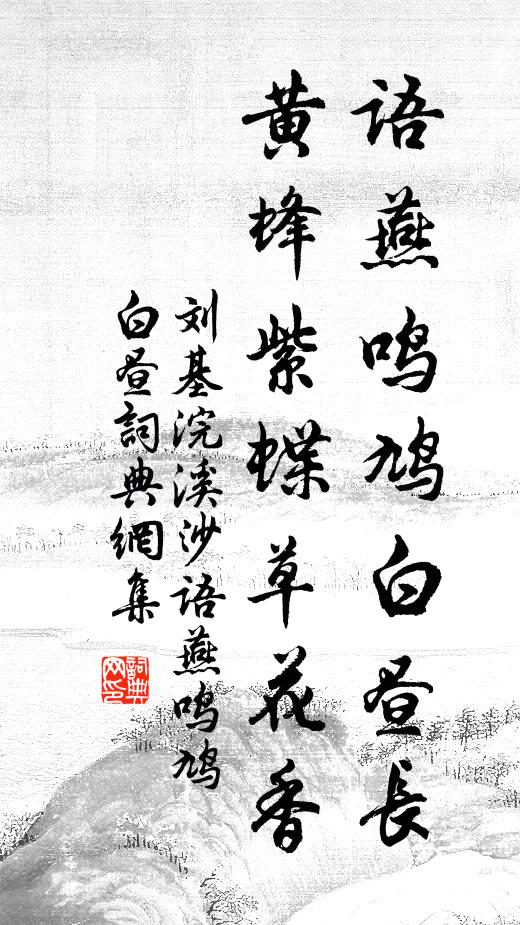 语燕鸣鸠白昼長
黄蜂紫蝶草花香
刘基浣溪沙语燕鸣鸠
白昼詞典網集
詞典
网印